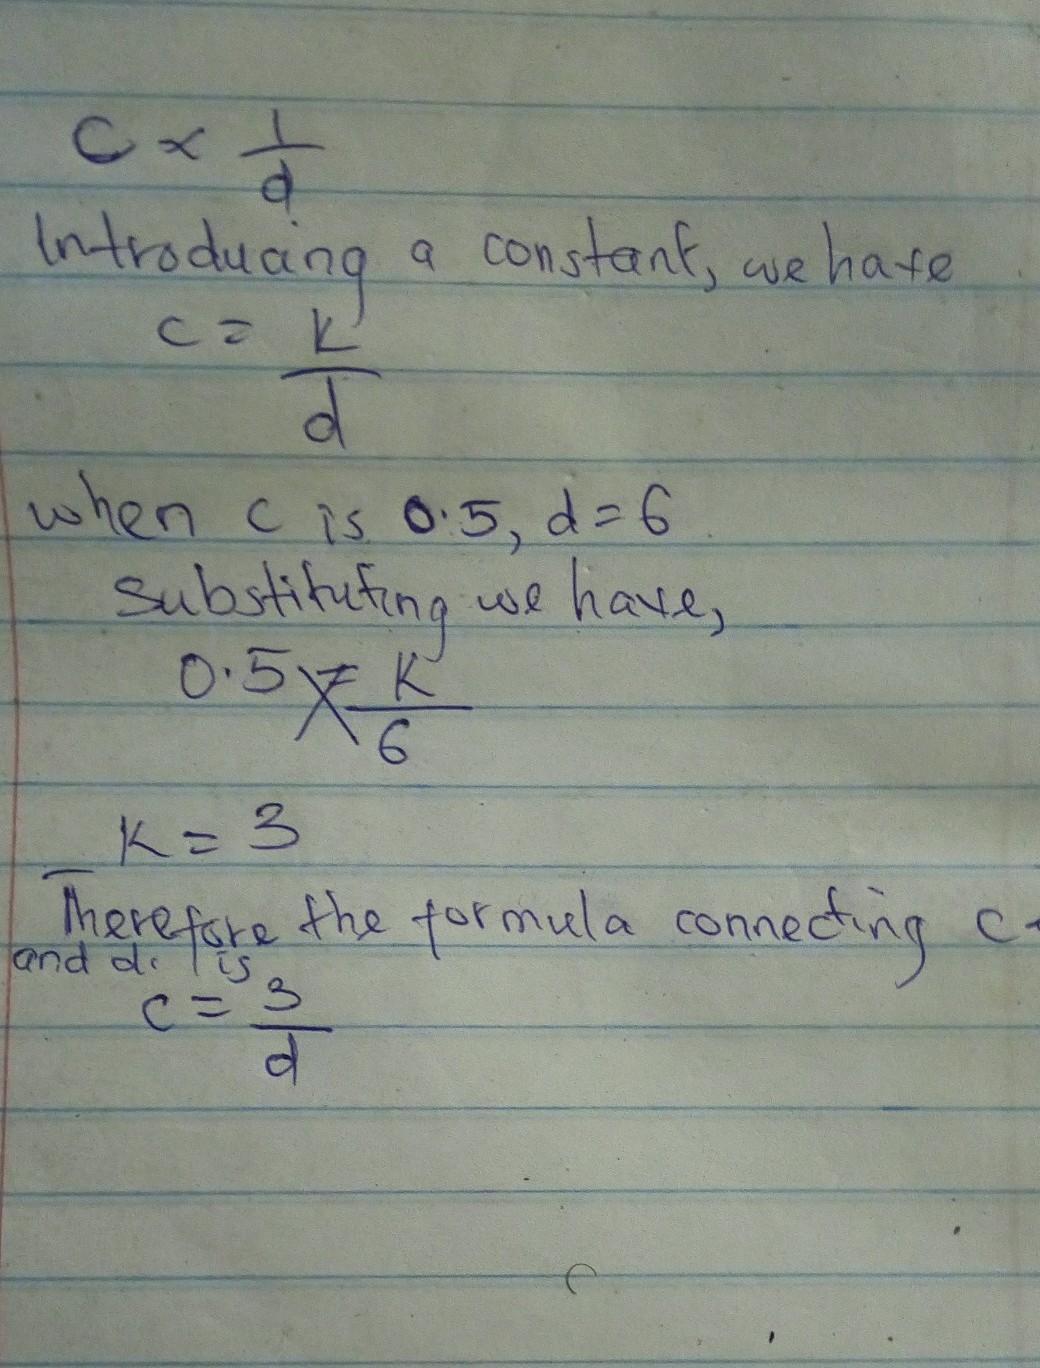 C ∝ 1/d
Introducing a constant, we have
c = k/d
when c is 0.5, d = 6
Substituting we have,
0.5 = k/6
k = 3
Therefore the formula connecting c
and d. is
c = 3/d